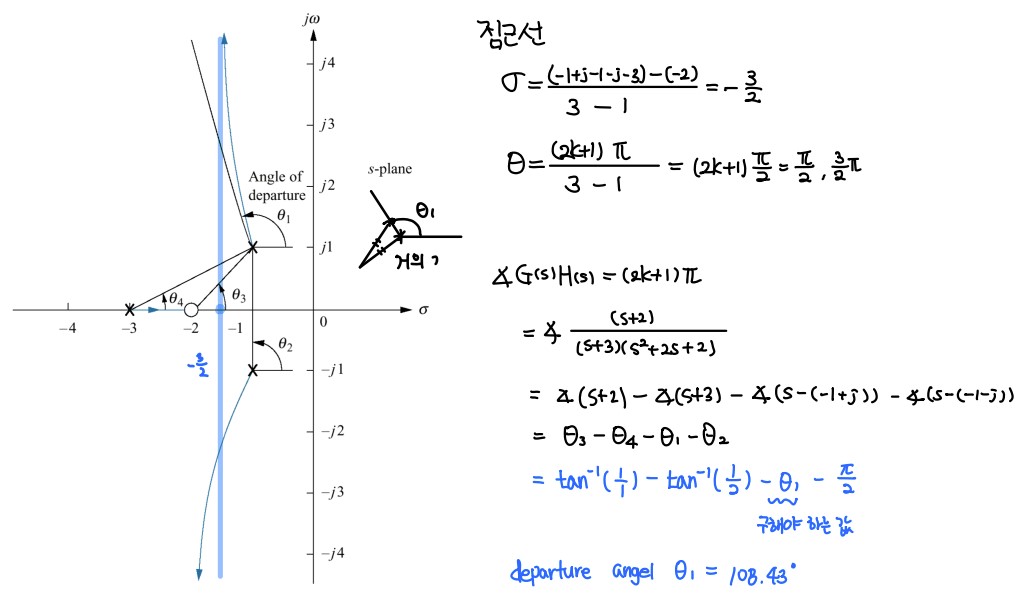 jω
j4
j3
j2
j1
0
−j1
−j2
−j3
−j4
−4
−3
−2
−1
σ
Angle of
departure
θ1
θ2
θ3
θ4
-3/2
s-plane
θ1
거의 1
점근선
σ = ((-1+j-1-j-3)-(-2))/(3-1) = -3/2
θ = (2k+1)π/(3-1) = (2k+1)π/2 = π/2, 3/2π
∡G(s)H(s) = (2k+1)π
= ∡ (s+2)/((s+3)(s²+2s+2))
= ∡(s+2) - ∡(s+3) - ∡(s-(-1+j)) - ∡(s-(-1-j))
= θ3 - θ4 - θ1 - θ2
= tan⁻¹(1/1) - tan⁻¹(1/2) - θ1 - π/2
구해야 하는 값
departure angel θ1 = 108.43°